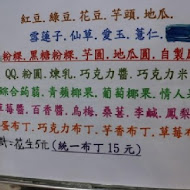 紅豆.綠豆.花豆.芋頭.地瓜.
雪蓮子.仙草.愛玉.薏仁.
粉粿.黑糖粉粿.芋圓.地瓜圓.自製
QQ.粉圓.煉乳.巧克力醬.巧克力米
綜合蒟蒻.青蘋椰果.葡萄椰果.情人
草莓醬.百香果.烏梅.桑葚.李鹹.鳳梨
蛋布丁.巧克力布丁.芋香布丁.草莓布
花生5元(統一布丁15元)